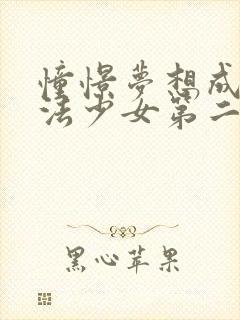 憧憬夢想成
法少女第二
黑心苹果